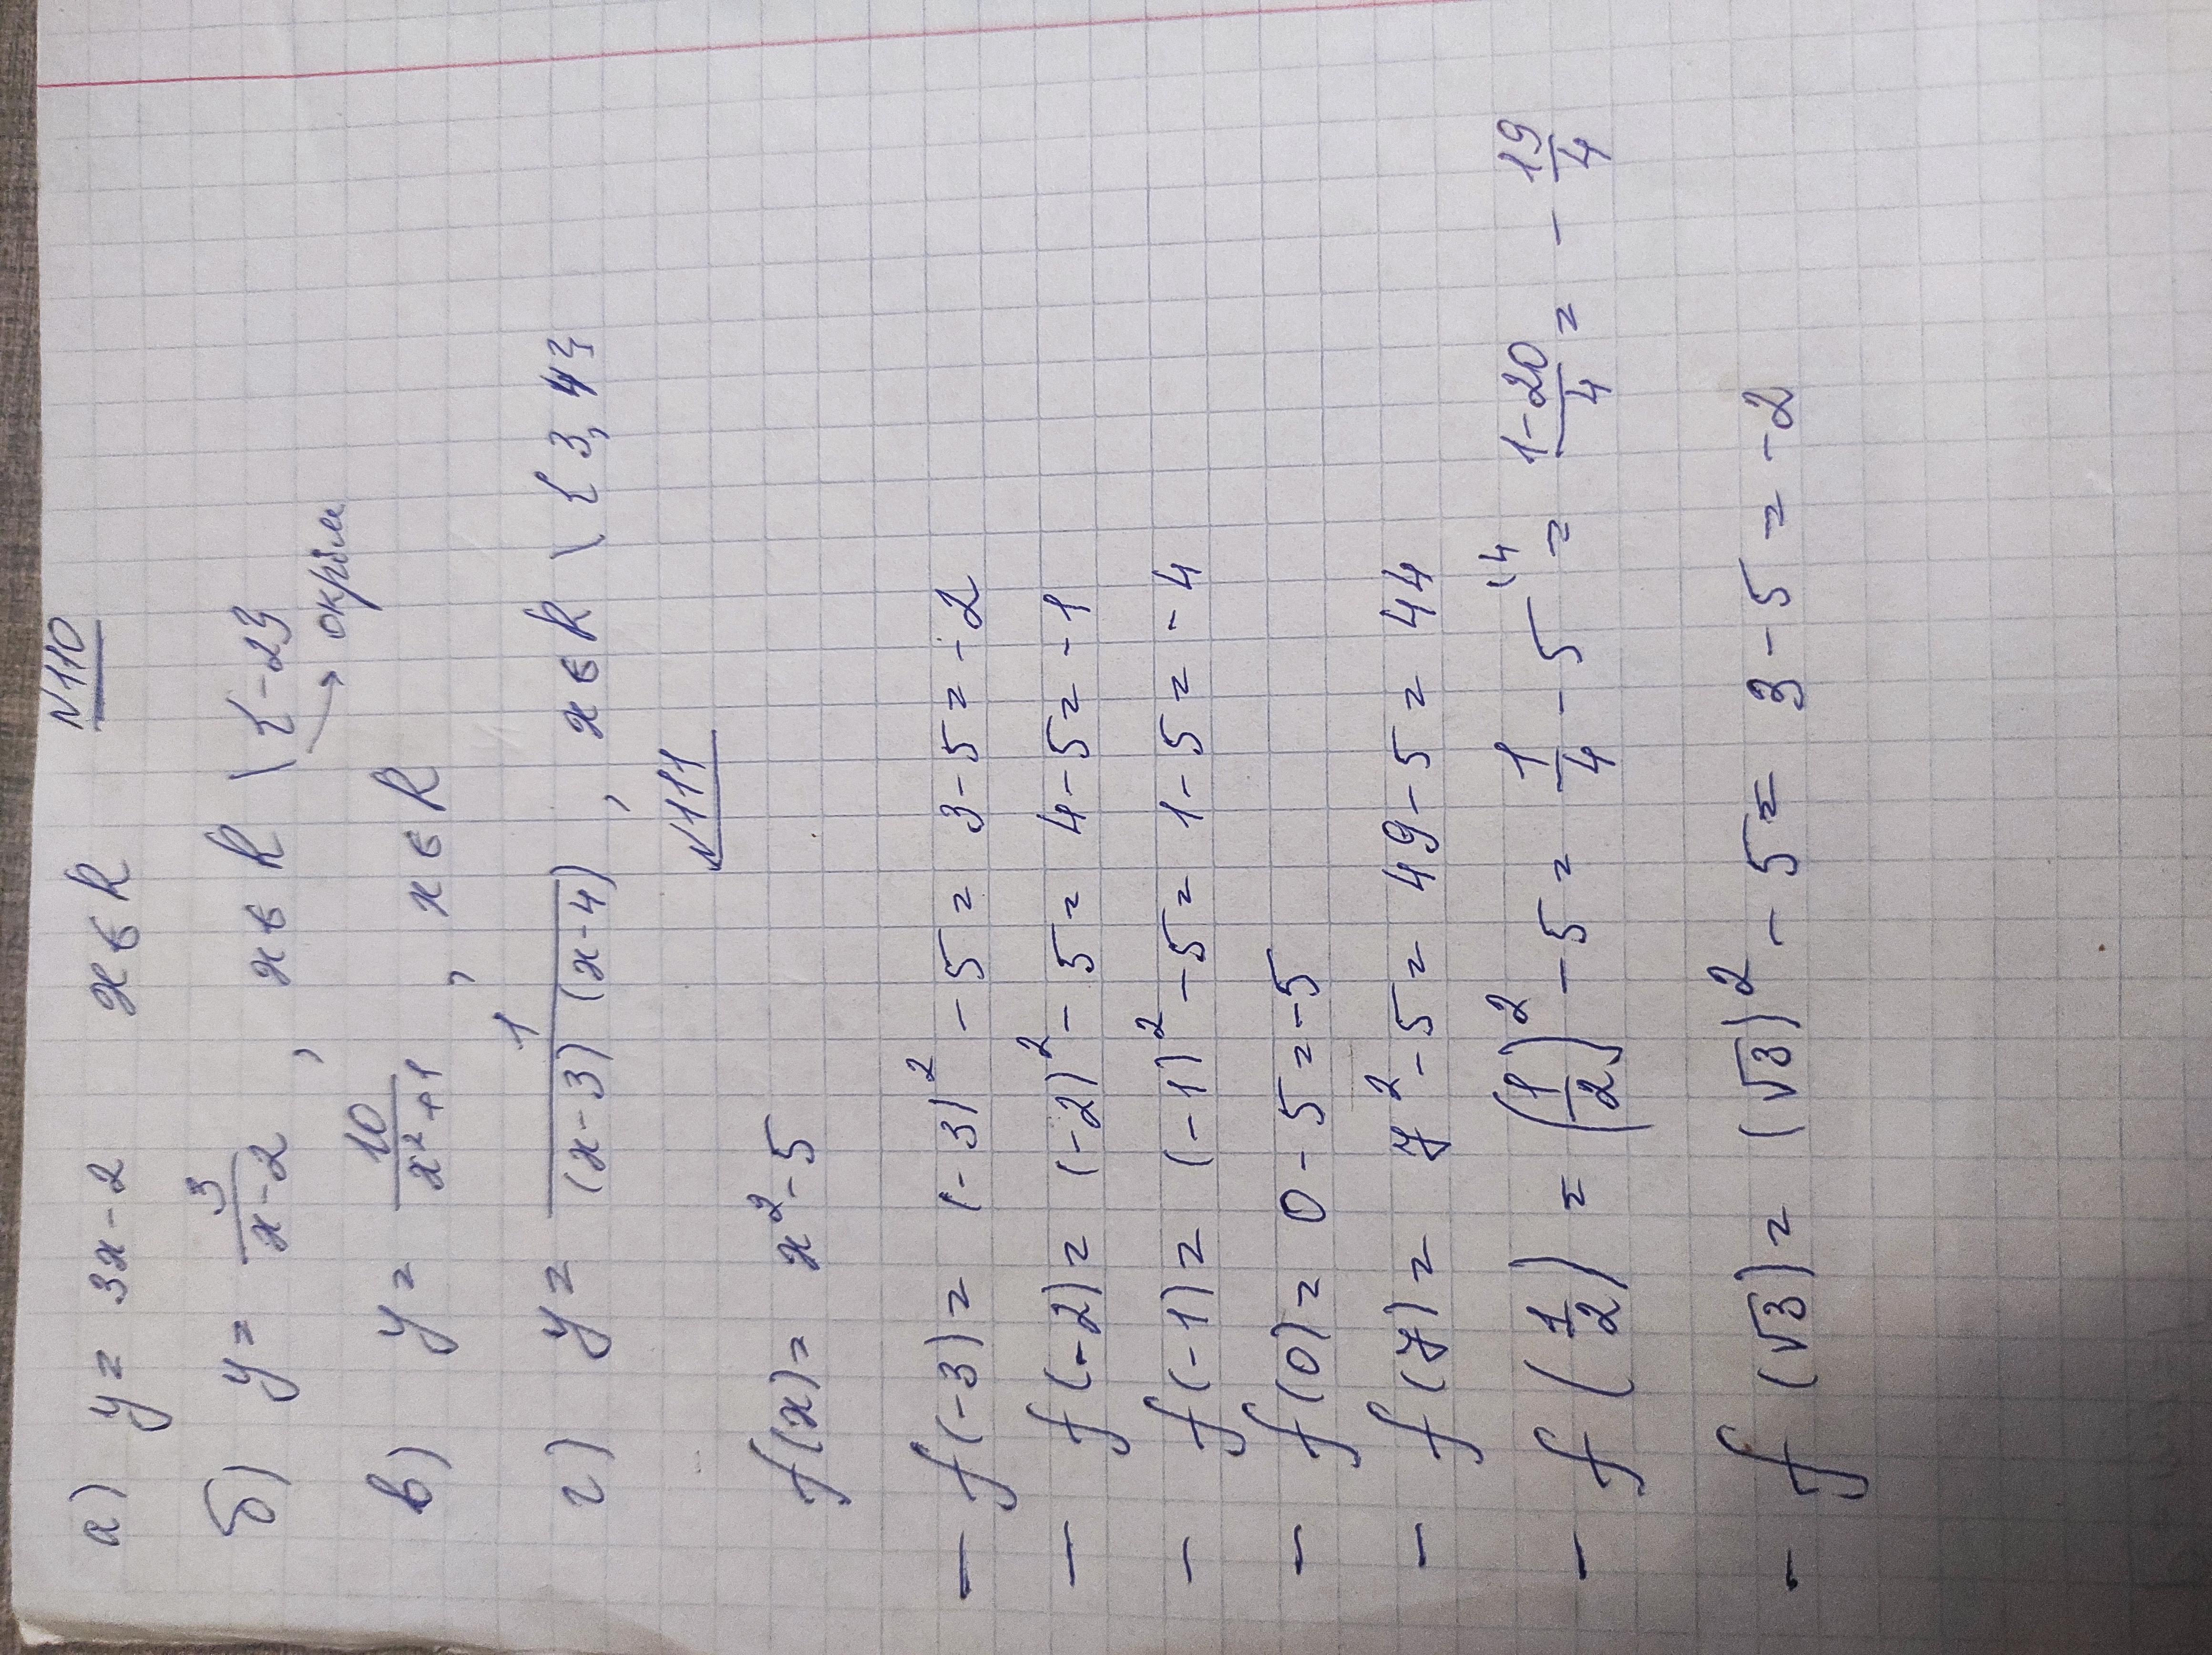 N110
а) y = 3x - 2 x ∈ R
б) y = 3/(x - 2) , x ∈ R \ {-2}
→ окрім
в) y = 10/(x² + 1) , x ∈ R
г) y = 1/((x - 3)(x - 4)) , x ∈ R \ {3, 4}
N111
f(x) = x² - 5
- f(-3) = (-3)² - 5 = 3 - 5 = -2
- f(-2) = (-2)² - 5 = 4 - 5 = -1
- f(-1) = (-1)² - 5 = 1 - 5 = -4
- f(0) = 0 - 5 = -5
- f(7) = 7² - 5 = 49 - 5 = 44
- f(1/2) = (1/2)² - 5 = 1/4 - 5⁽⁴ = (1 - 20)/4 = - 19/4
- f(√3) = (√3)² - 5 = 3 - 5 = -2